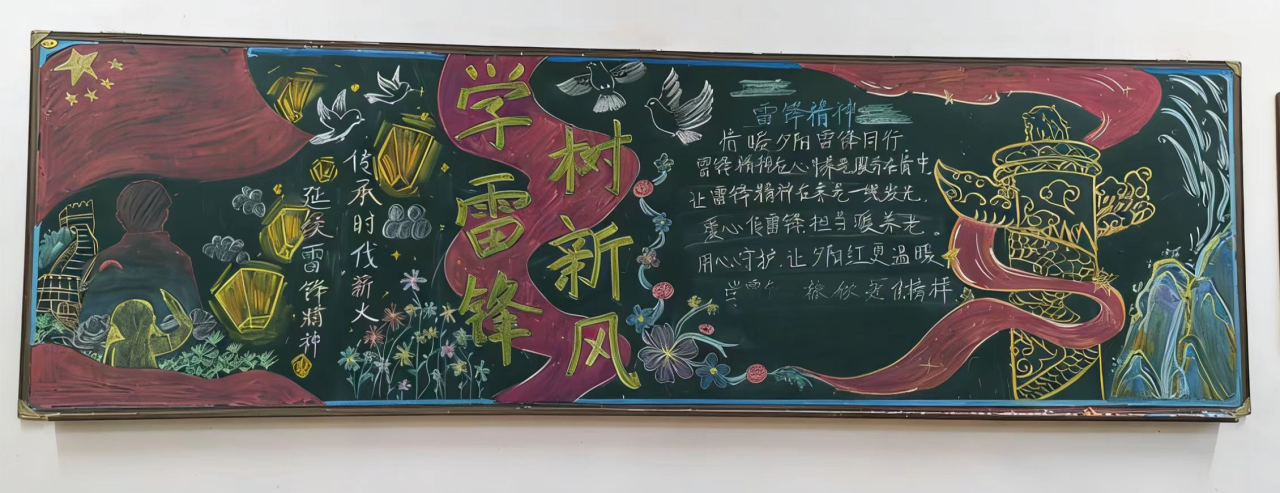 延续雷锋精神
传承时代薪火
学雷锋
树新风
雷锋精神
暖夕阳 雷锋同行
雷锋精神在心 养老服务在
让雷锋精神在养老一线发光.
爱心传雷锋.担当暖养老.
用心守护.让夕阳红更温暖